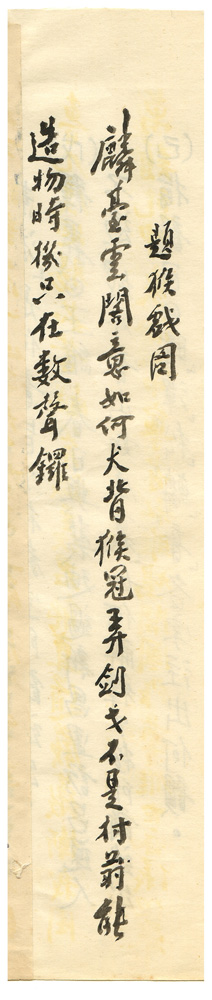 題猴戲圖
麟臺雲閣意如何犬背猴冠弄劍戈不是村翁能
造物時機只在數聲鑼